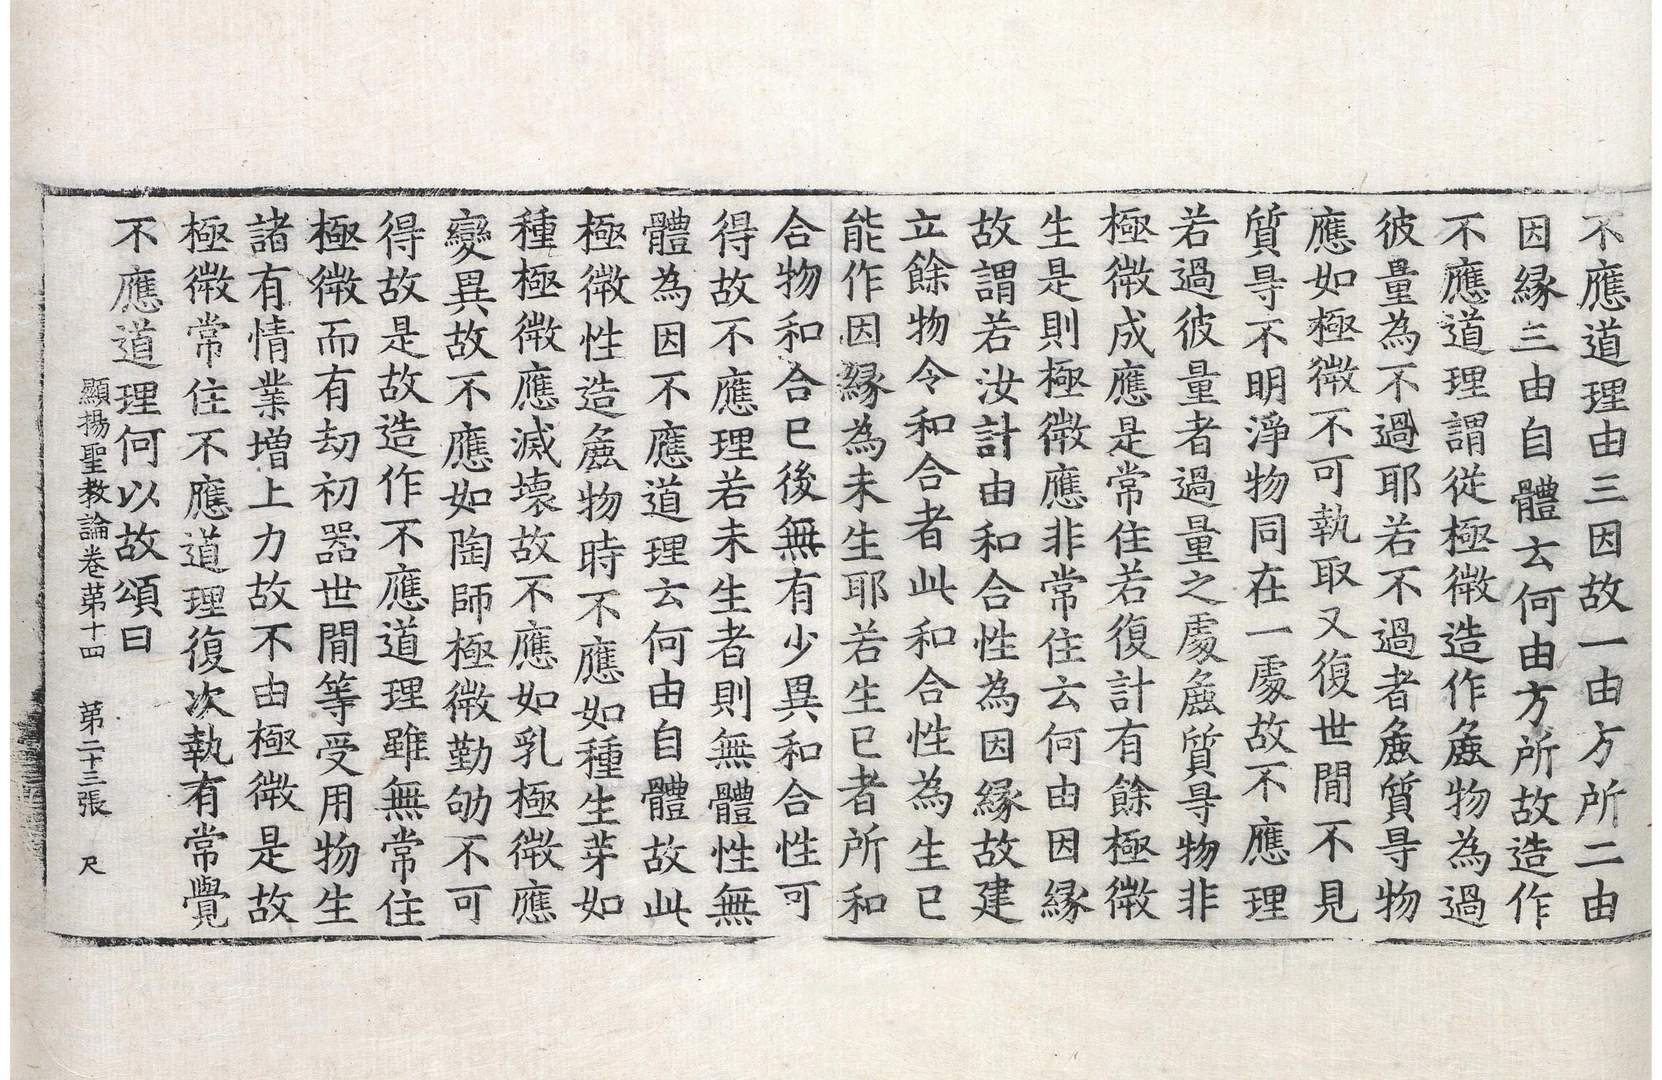 不應道理由三因故一由方所二由
因緣三由自體云何由方所故造作
不應道理謂從極微造作麁物為過
彼量為不過耶若不過者麁質㝵物
應如極微不可執取又復世間不見
質㝵不明淨物同在一處故不應理
若過彼量者過量之處麁質㝵物非
極微成應是常住若復計有餘極微
生是則極微應非常住云何由因緣
故謂若汝計由和合性為因緣故建
立餘物令和合者此和合性為生已
能作因緣為未生耶若生已者所和
合物和合已後無有少異和合性可
得故不應理若未生者則無體性無
體為因不應道理云何由自體故此
極微性造麁物時不應如種生芽如
種極微應滅壞故不應如乳極微應
變異故不應如陶師極微勤劬不可
得故是故造作不應道理雖無常住
極微而有劫初器世間等受用物生
諸有情業增上力故不由極微是故
極微常住不應道理復次執有常覺
不應道理何以故頌曰
顯揚聖教論卷第十四 第二十三張 尺